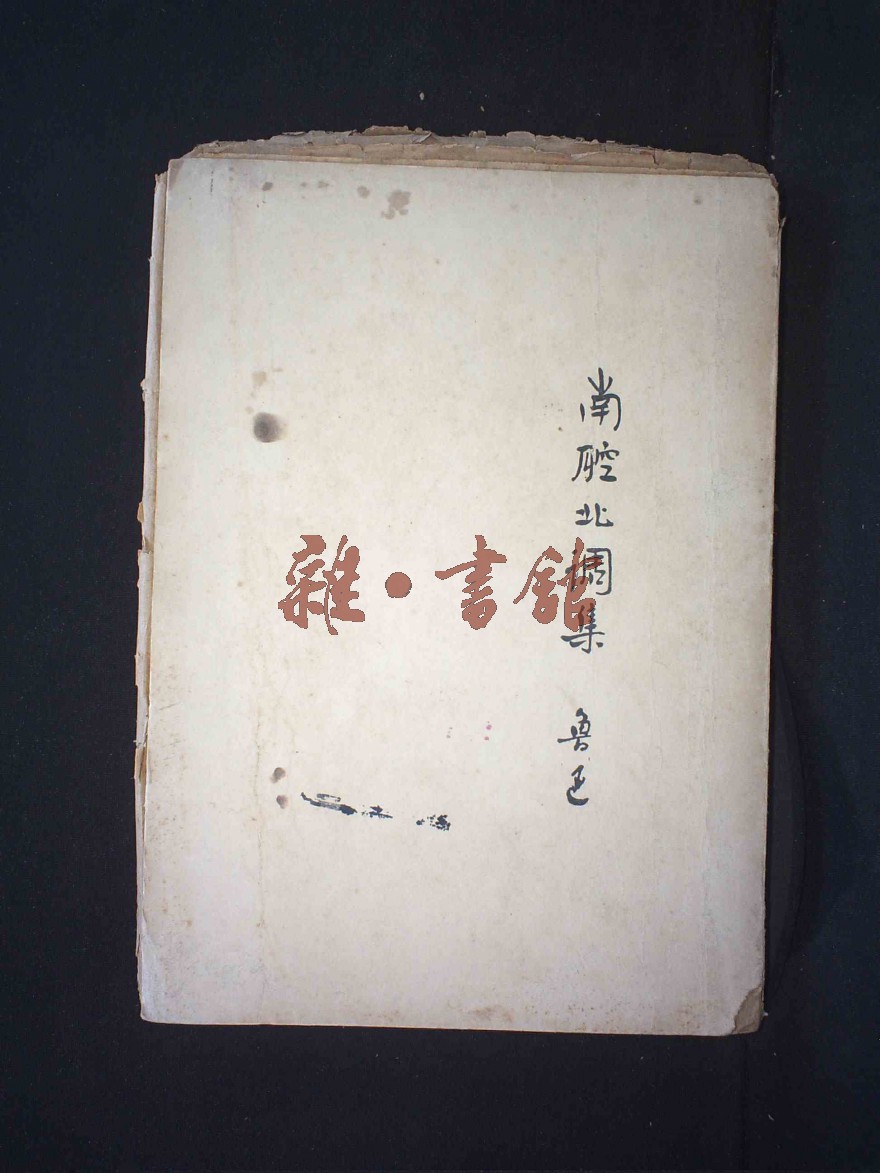 南腔北調集 魯迅
雜·書館